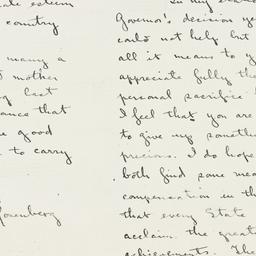 esteem
country
many a
mother
last
ance that
good
to carry
Rosenberg
in my
Governor's decision
could not help but
all it means to
appreciate fully the
personal sacrifice
I feel that you are
to give up something
precious. I do hope
both find some
compensation in the
that every State
acclaim the great
achievements. The